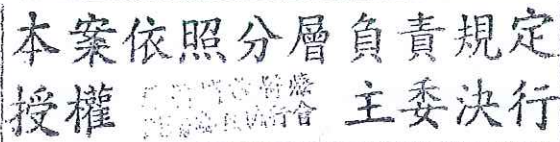 本案依照分層負責規定
授權 主委決行